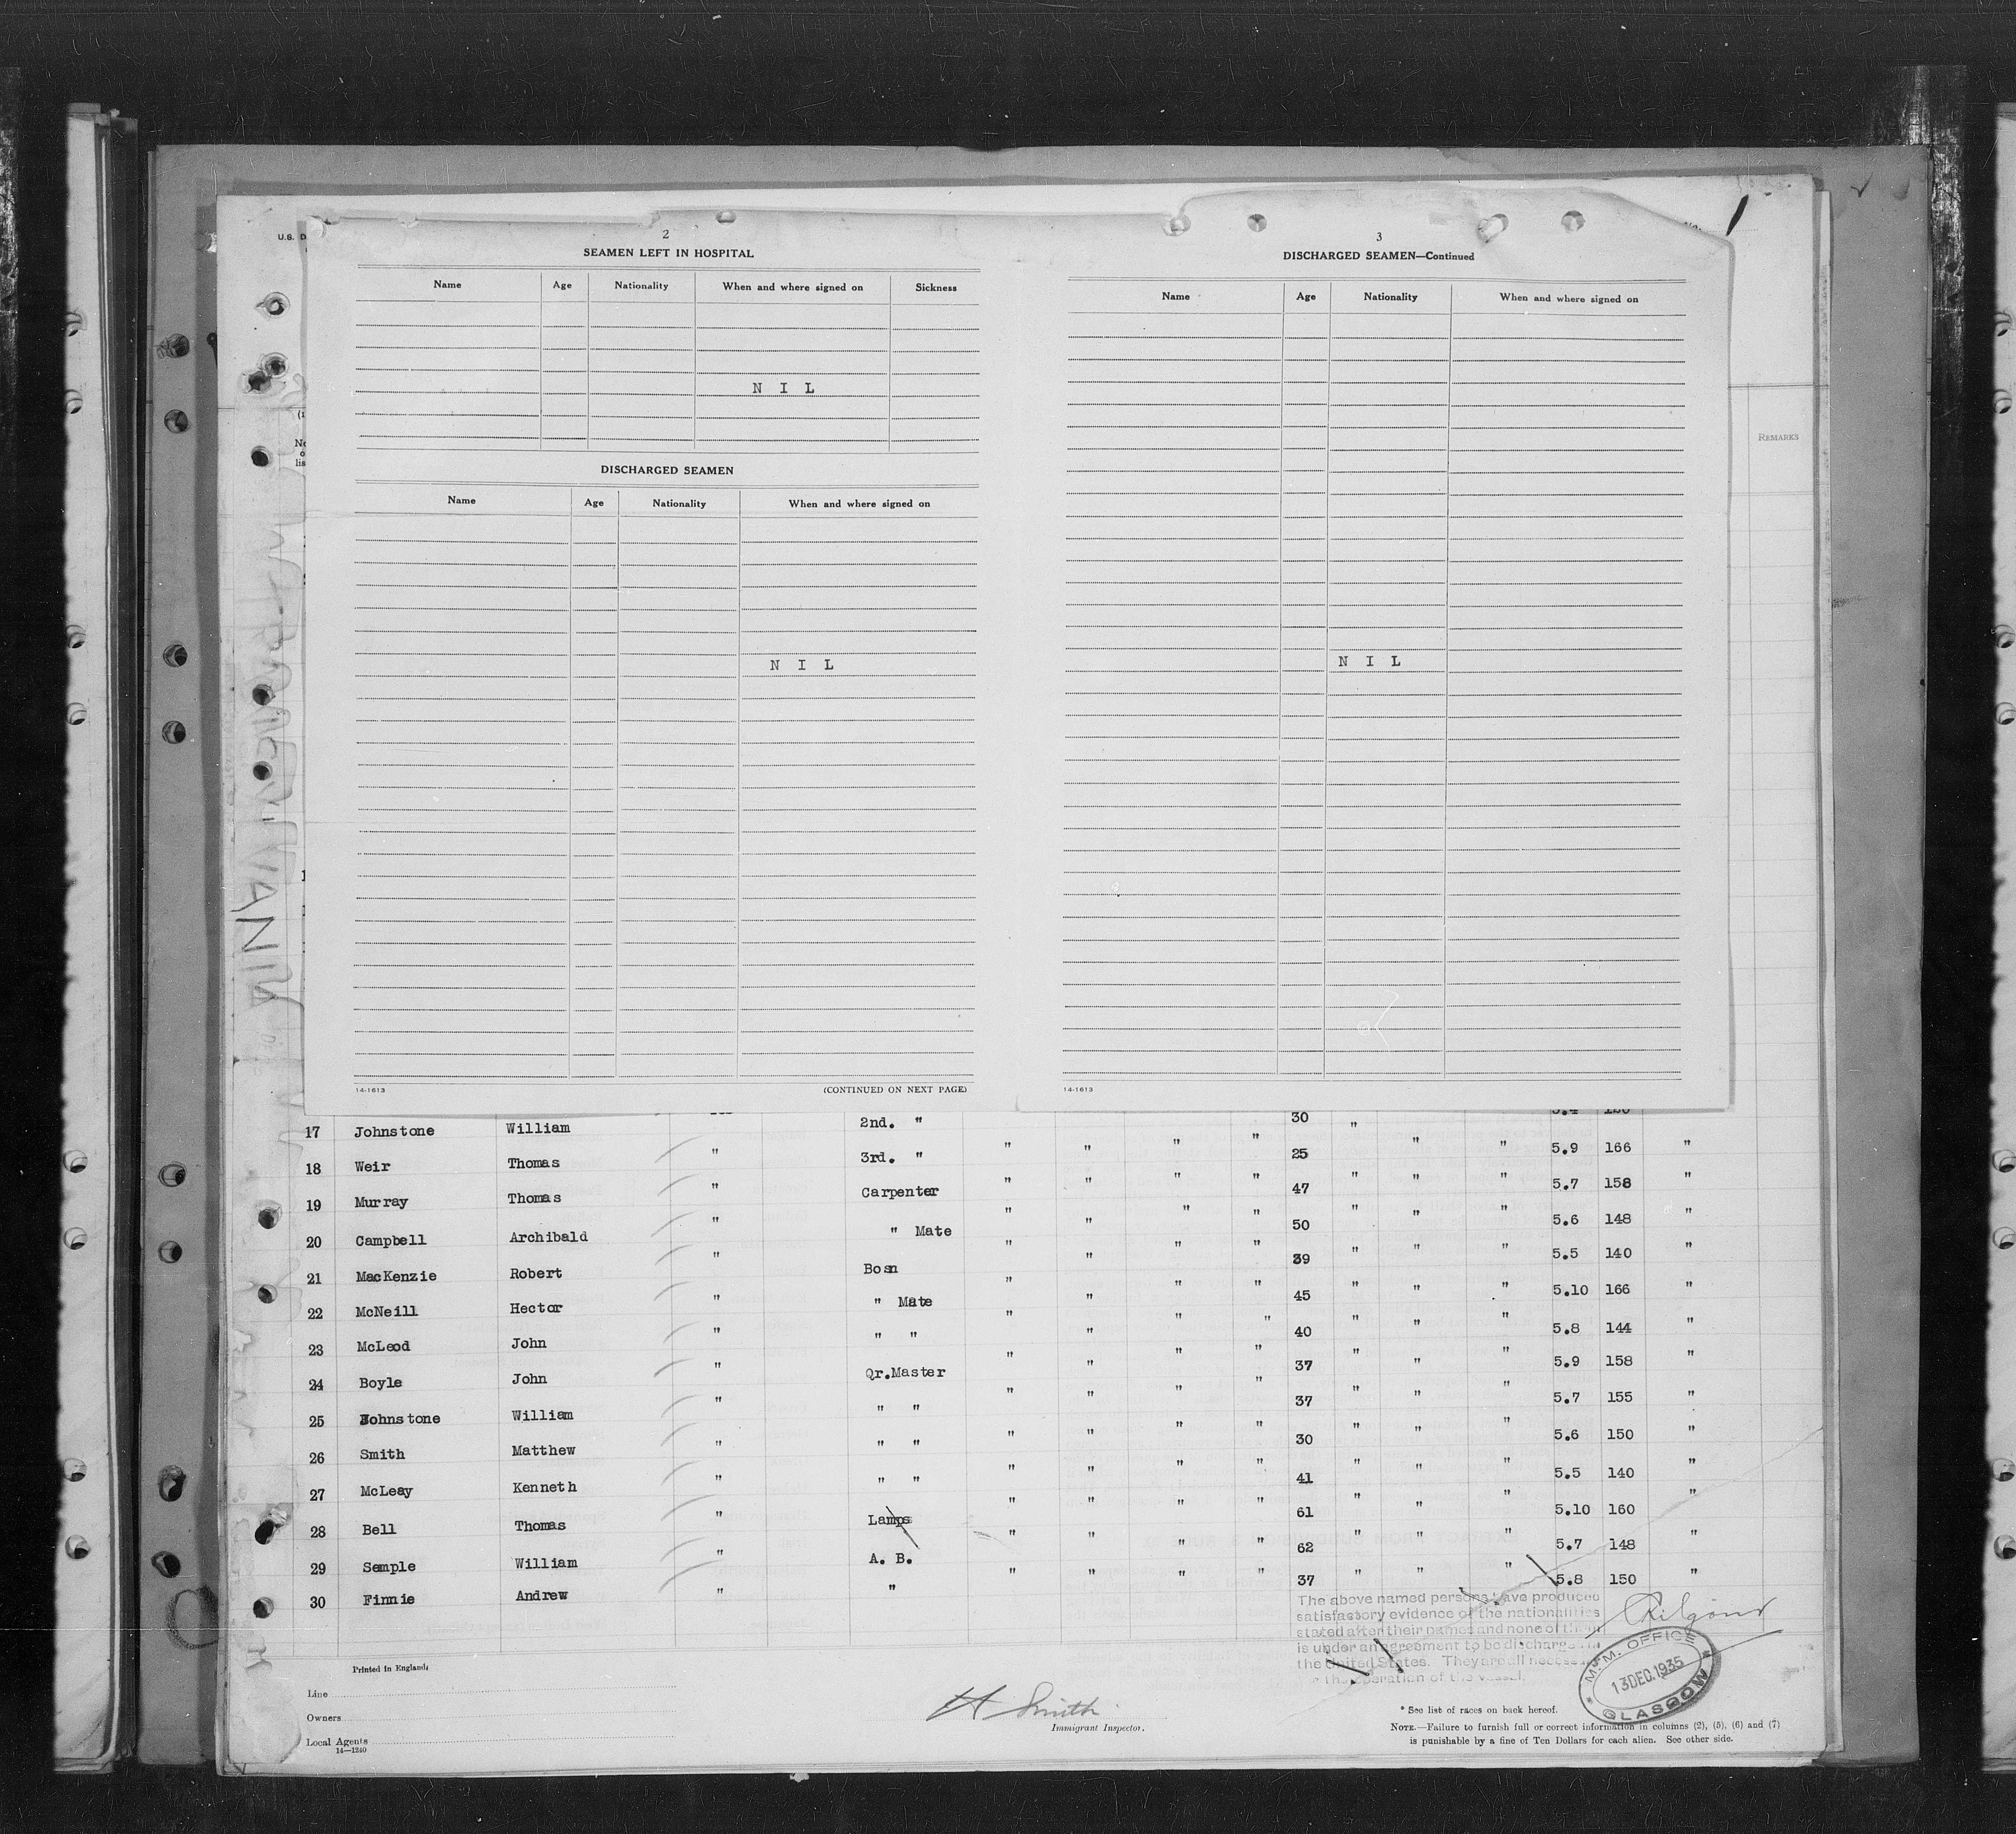 U.S. D
2
SEAMEN LEFT IN HOSPITAL
Name Age Nationality When and where signed on Sickness
N I L
DISCHARGED SEAMEN
Name Age Nationality When and where signed on
N I L
14-1613 (CONTINUED ON NEXT PAGE)
3
DISCHARGED SEAMEN—Continued
Name Age Nationality When and where signed on
N I L
14-1613
REMARKS
17 Johnstone William 2nd. " 30 "
18 Weir Thomas " 3rd. " " " " " 25 " " 5.9 166 "
19 Murray Thomas " Carpenter " " " " 47 " " " 5.7 158 "
20 Campbell Archibald " " Mate " " " " 50 " " " 5.6 148 "
21 MacKenzie Robert " Bosn " " " " 39 " " " 5.5 140 "
22 McNeill Hector " " Mate " " " " 45 " " " 5.10 166 "
23 McLeod John " " " " " " " 40 " " " 5.8 144 "
24 Boyle John " Qr.Master " " " " 37 " " " 5.9 158 "
25 Johnstone William " " " " " " " 37 " " " 5.7 155 "
26 Smith Matthew " " " " " " " 30 " " " 5.6 150 "
27 McLeay Kenneth " " " " " " " 41 " " " 5.5 140 "
28 Bell Thomas " Lamps " " " " 61 " " " 5.10 160 "
29 Semple William " A. B. " " " 62 " " " 5.7 148 "
30 Finnie Andrew " " " " " " 37 " " " 5.8 150 "
The above named persons have produced
satisfactory evidence of the nationalities
stated after their names and none of them
is under an agreement to be discharged in
the United States. They are all necessary
the operation of the vessel.
M.M. OFFICE
13 DEC. 1935
GLASGOW
Printed in England
Line
Owners
Local Agents
14—1240
H Smith
Immigrant Inspector.
* See list of races on back hereof.
NOTE.—Failure to furnish full or correct information in columns (2), (5), (6) and (7)
is punishable by a fine of Ten Dollars for each alien. See other side.